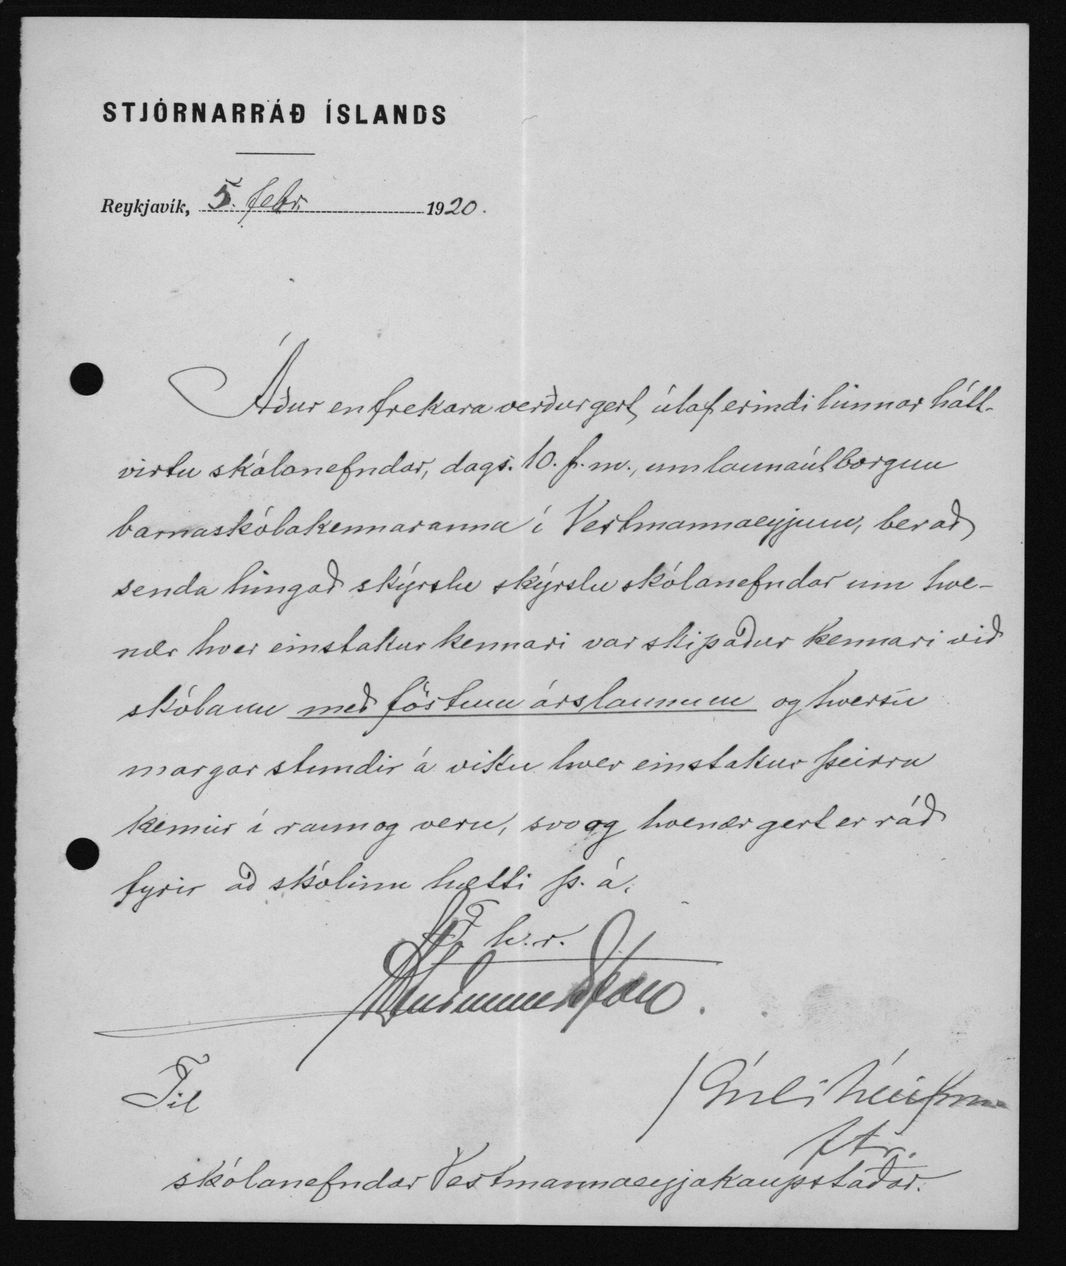 STJÓRNARRÁÐ ÍSLANDS
Reykjavík, 5. febr. 1920.
Áður en frekara verður gert útaf erindi hinnar hátt-
virtu skólanefndar, dags. 10. f. m., um launaútborgun
barnaskólakennaranna í Vestmannaeyjum, ber að
senda hingað skýrslu skýrslu skólanefndar um hve-
nær hver einstakur kennari var skipaður kennari við
skólann með föstum árslaunum og hversu
margar stundir á viku hver einstakur þeirra
kennir í raun og veru, svo og hvenær gert er ráð
fyrir að skólinn hætti þ. á.
F. h. r.
Til
ftr.
skólanefndar Vestmannaeyjakaupstaðar.